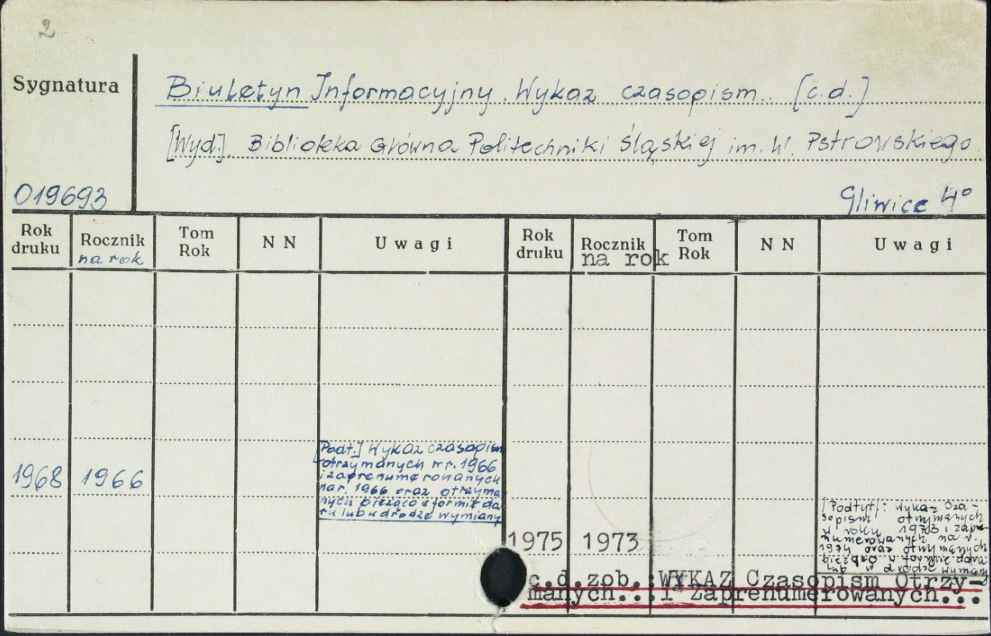 2
Sygnatura
Biuletyn Informacyjny. Wykaz czasopism. [c.d.]
[Wyd.]. Biblioteka Główna Politechniki Śląskiej im. W. Pstrowskiego
019693
Gliwice 4°
Rok druku Rocznik na rok Tom Rok NN Uwagi Rok druku Rocznik na rok Tom Rok NN Uwagi
1968 1966
[Podt.] Wykaz czasopism
otrzymanych w r. 1966
i zaprenumerowanych
na r. 1966 oraz otrzyma-
nych bieżąco w formie da-
ru lub w drodze wymiany
1975 1973
[Podtyt]: Wykaz Cza-
sopism otrzymanych
w roku 1973 i zapre-
numerowanych na r.
1974 oraz otrzymanych
bieżąco w formie daru
lub w drodze wymiany
c.d.zob.:WYKAZ Czasopism Otrzy-
manych...i Zaprenumerowanych...